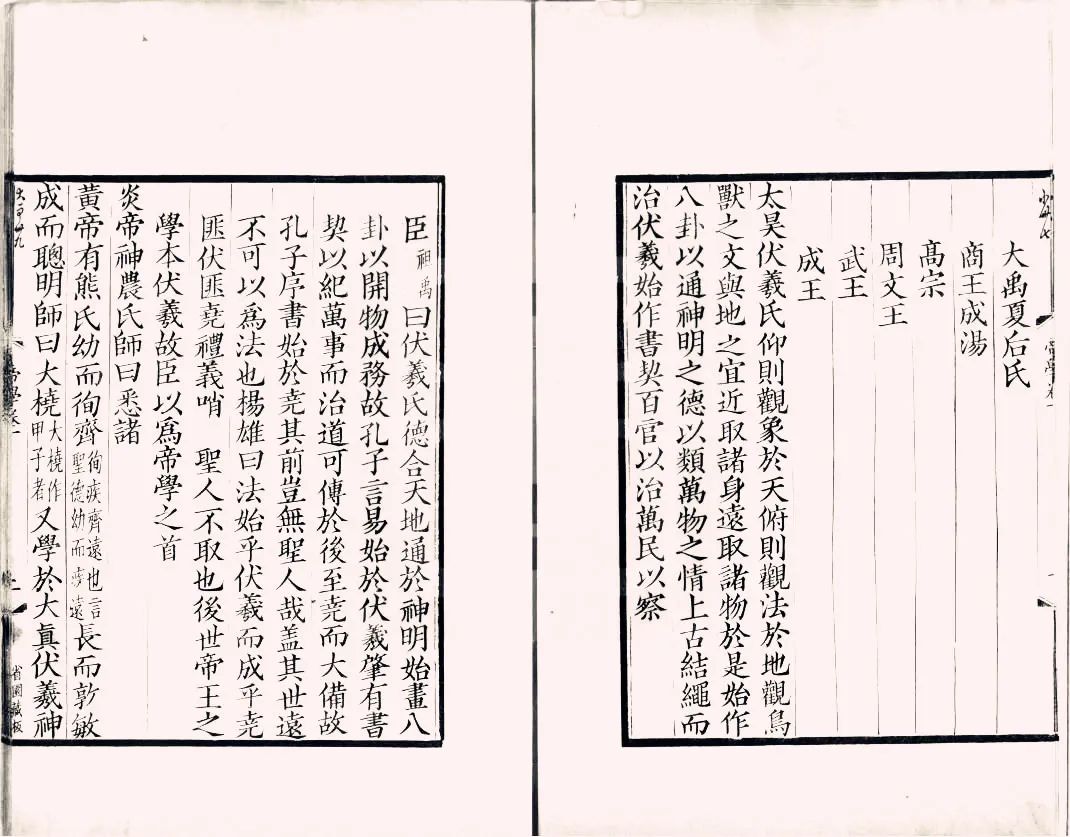 大禹夏后氏
商王成湯
髙宗
周文王
武王
成王
太昊伏羲氏仰則觀象於天俯則觀法於地觀鳥
獸之文與地之宜近取諸身遠取諸物於是始作
八卦以通神明之德以類萬物之情上古結繩而
治伏羲始作書契百官以治萬民以察
帝學卷一
一
臣祖禹曰伏羲氏德合天地通於神明始畫八
卦以開物成務故孔子言易始於伏羲肇有書
契以紀萬事而治道可傳於後至堯而大備故
孔子序書始於堯其前豈無聖人哉盖其世遠
不可以爲法也楊雄曰法始乎伏羲而成乎堯
匪伏匪堯禮義哨 聖人不取也後世帝王之
學本伏羲故臣以爲帝學之首
炎帝神農氏師曰悉諸
黃帝有熊氏幼而徇齊徇疾齊遠也言聖德幼而疾遠長而敦敏
成而聰明師曰大橈大橈作甲子者又學於大眞伏羲神
大一百卅九
帝學卷一
二
省園藏板